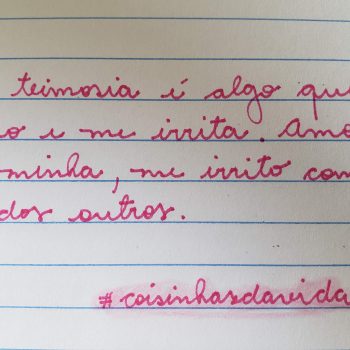 teimosia é algo que
o e me irrita. Amo
minha, me irrito com
dos outros.
#coisinhasdavida